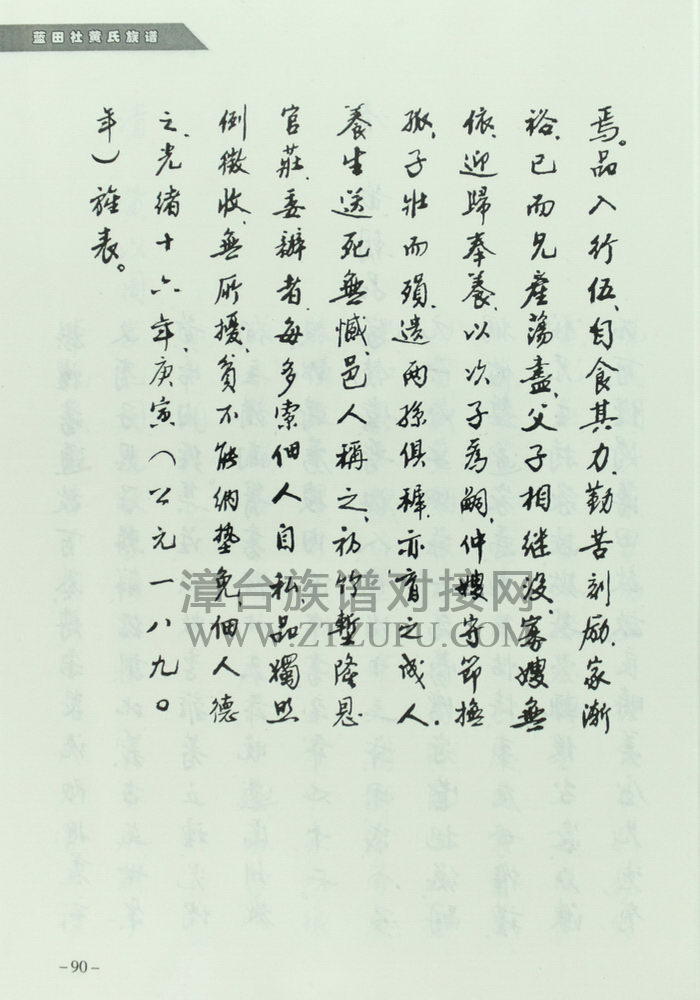 蓝田社黄氏族谱
焉。品入行伍，自食其力，勤苦刻励，家渐
裕，已而兄產荡盡，父子相继没，寡嫂無
依，迎歸奉養，以次子爲嗣，仲嫂守節撫
孤，子壯而殞，遗两孫俱穉，亦育之成人，
養生送死無憾，邑人稱之，初竹塹隆恩
官莊，委辦者，每多索佃人自私，品獨照
例徵收，無所擾，貧不能纳墊免，佃人德
之，光绪十六年，庚寅（公元一八九〇
年）旌表。
漳台族谱对接网
WWW.ZTZUPU.COM
-90-